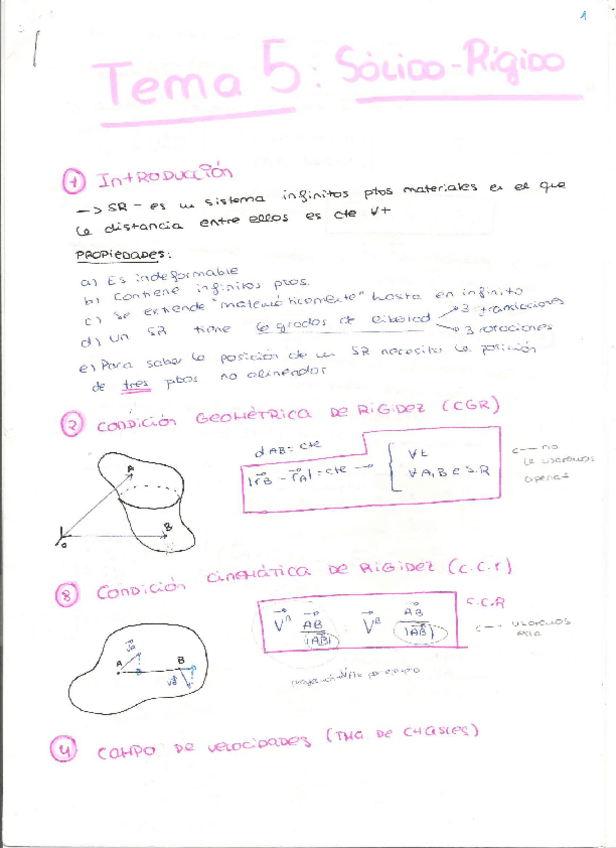 1
Tema 5: Sólido-Rígido
1 Introducción
-> SR - es un sistema infinitos ptos materiales en el que
la distancia entre ellos es cte ∀t
PROPIEDADES:
a) Es indeformable
b) Contiene infinitos ptos.
c) Se extiende "matemáticamente" hasta en infinito
d) Un SR tiene 6 grados de libertad 3 translaciones
3 rotaciones
e) Para saber la posición de un SR necesito la posición
de tres ptos no alineados
2 CONDICIÓN GEOMÉTRICA DE RIGIDEZ (CGR)
dAB = cte
|r⃗B - r⃗A| = cte → { ∀t
∀A,B ∈ S.R
<-- no
la usaremos
apenas
A
B
O
8 CONDICIÓN CINEMÁTICA DE RIGIDEZ (C.C.r)
V⃗A AB⃗/|AB⃗| V⃗B AB⃗/|AB⃗|
C.C.R
<-- usaremos
esta
A v⃗A B v⃗B
4 CAMPO DE VELOCIDADES (TMA DE CHASLES)